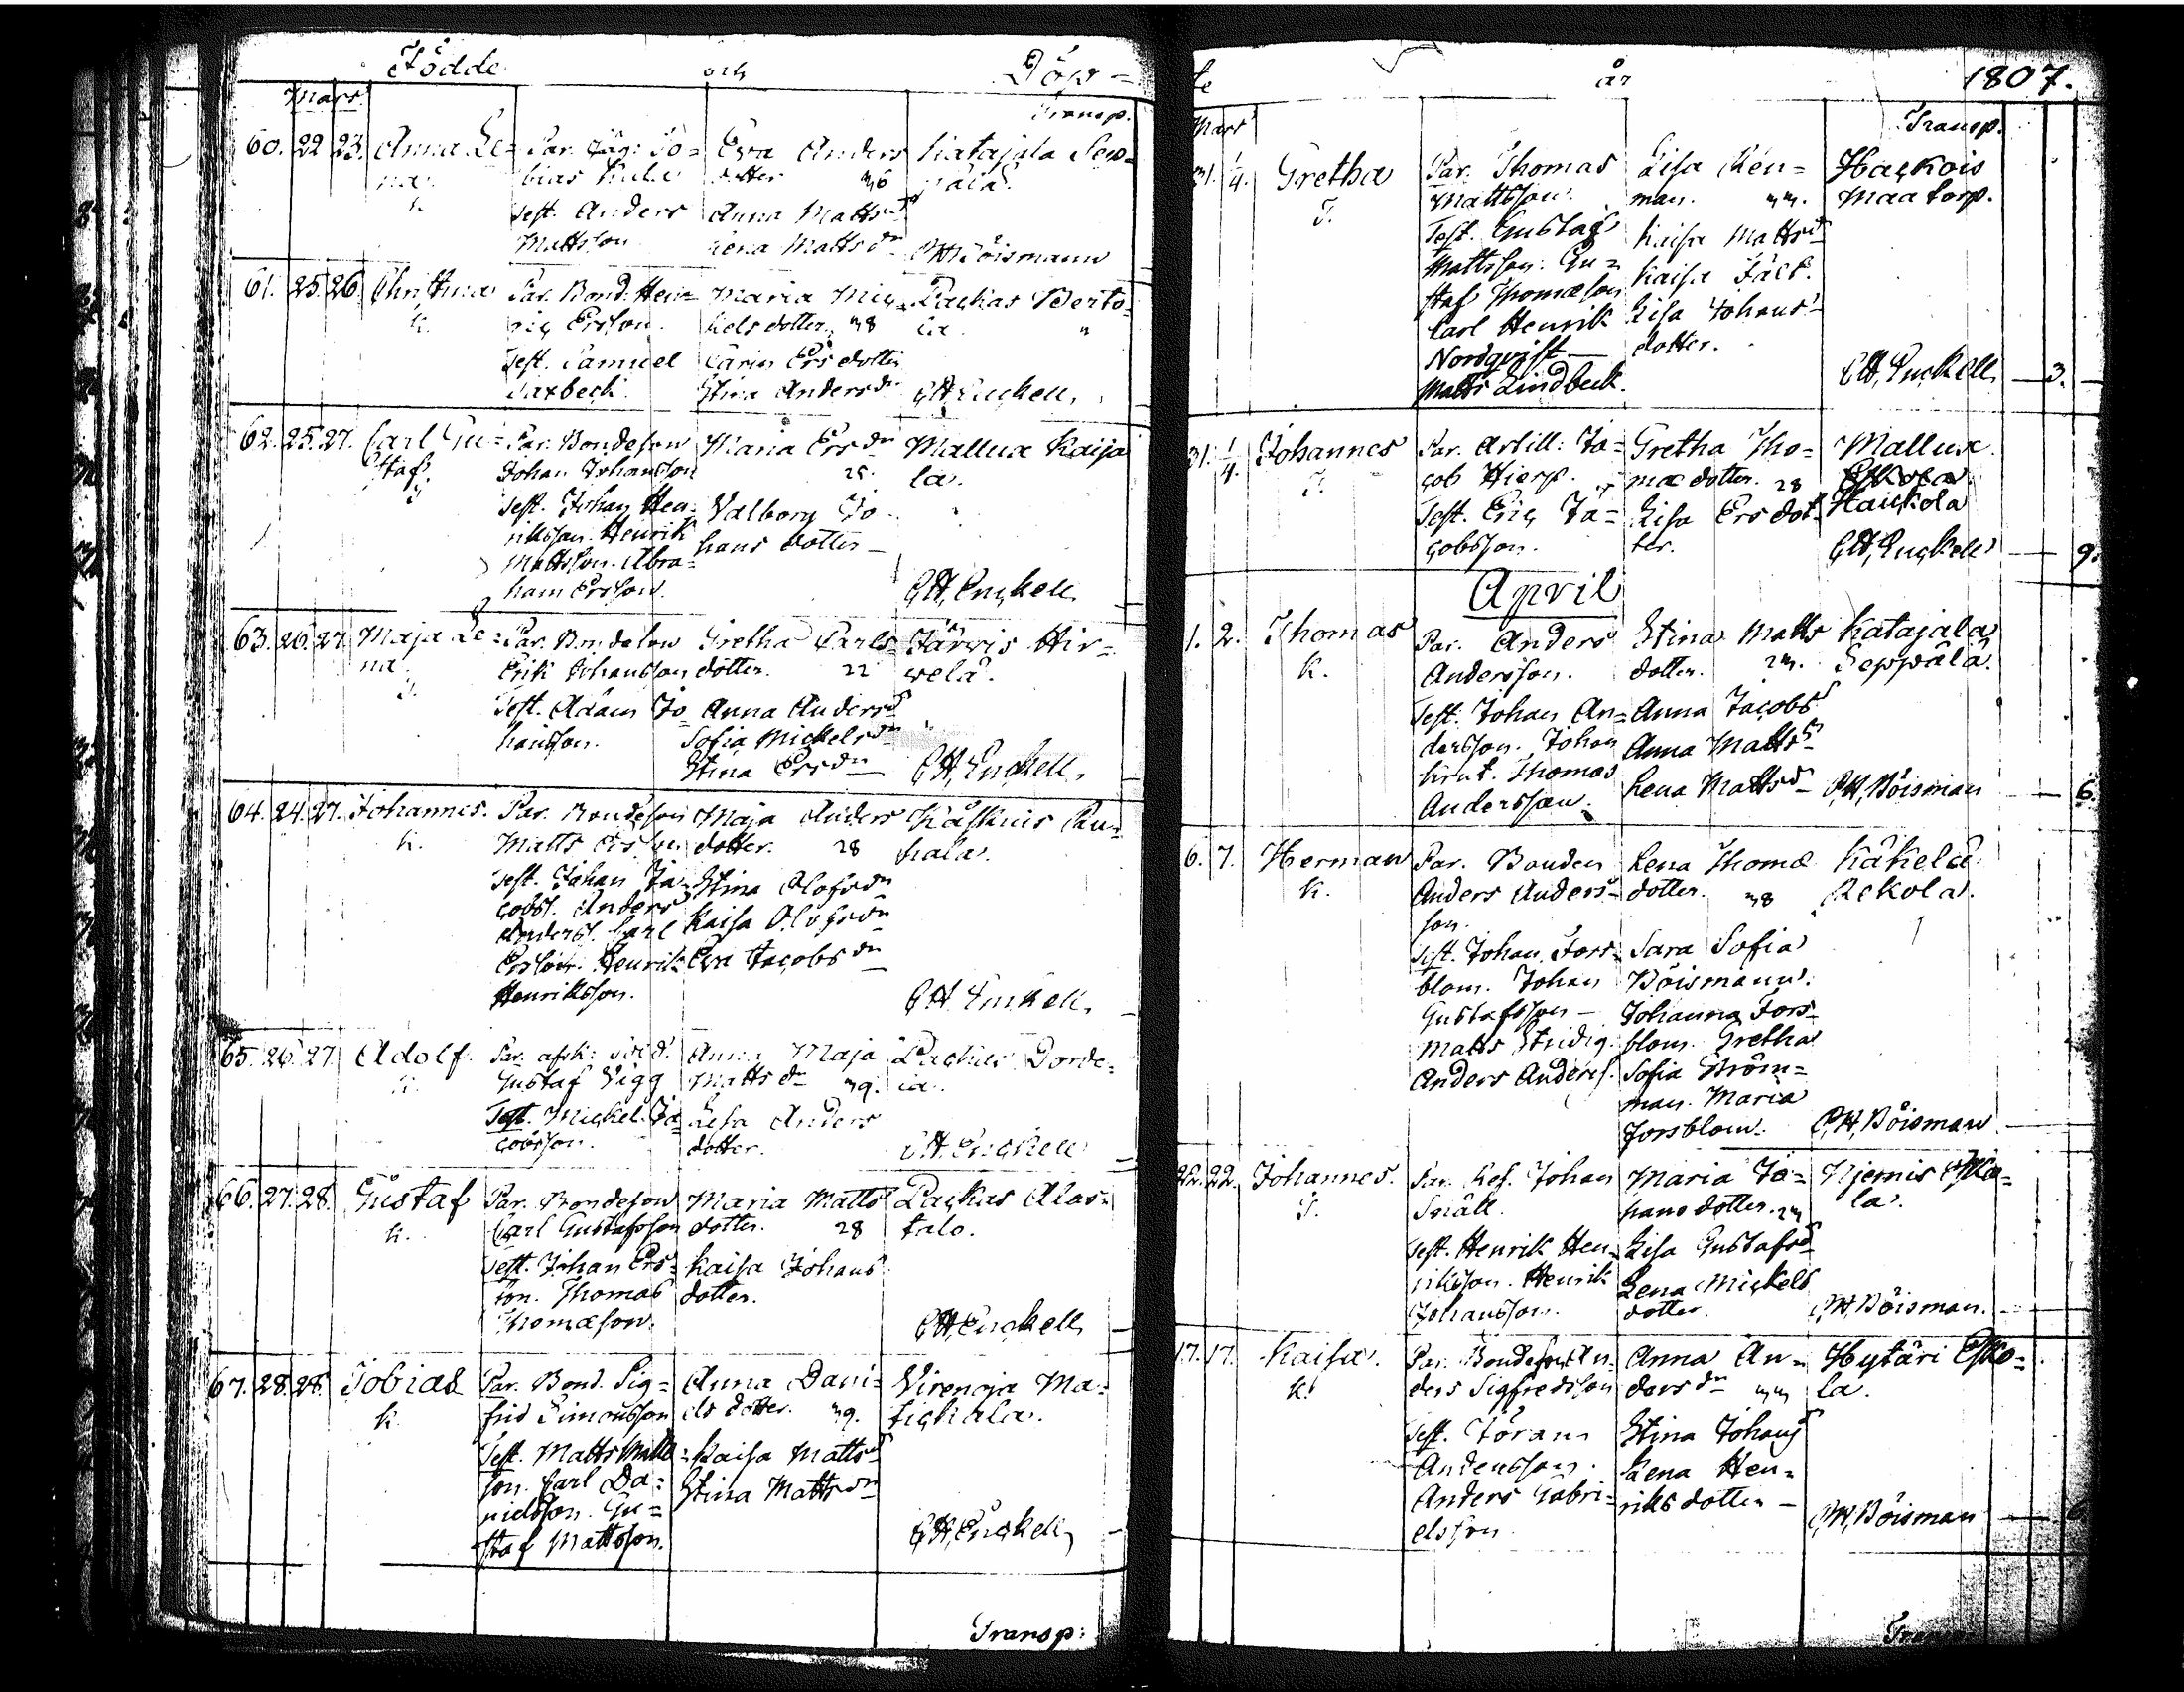 Födde och Döp=
Mars
Transp.
60. 22 23. Anna Le= Par. Jäg: To= Eva Anders Katajala Sep=
na. bias dotter 36 pälä.
k. Test. Anders Anna Mattsdr
Mattsson Lena Mattsdr CH Böismann
61. 25. 26. Christina Par. Bond. Hen= Maria Mic= Packas Berto
k. ric Ersson. kels dotter. 38 la.
Test. Samuel Carin Ers dotter
Saxbeck. Stina Andersdr CH, Enckell,
62. 25. 27. Carl Gu= Par. Bondeson Maria Ersdr Mallua Kaija
staf. Johan Johansson 25. la.
Test. Johan Hen= Valborg Jo
riksson. Henrik hans dotter –
Mattsson. Abra=
ham Ersson. CH, Enckell
63. 26. 27. Maja Le= Par. Bondeson Gretha Carls= Järvis Hir=
na Erik Johansson dotter. 22 velä.
T. Test. Adam Jo Anna Andersd
hansson. Sofia Mickelsdr
Stina Ersdr CH, Enckell,
64. 24. 27. Johannes. Par. Bondeson Maja Anders
k. Matts Ersson dotter. 28 hala.
Test. Johan Ja= Stina Olofsdr
cobs. Anders Kaisa Olofsdr
Anders. Carl Eva Jacobsdr
Ersson. Henrik
Henriksson. CH Enckell,
65. 26. 27. Adolf. Par. afsk: sold. Anna Maja Packas
k. Gustaf Vigg Mattsdr 39. la.
Test. Mickel Ja= Lisa Anders
cobsson. dotter. CH. Enckell
66. 27. 28. Gustaf Par. Bondeson Maria Matts Packas Alas=
k. Carl Gustafsson dotter. 28 talo.
Test. Johan Ers= Kaisa Johans
son. Thomas dotter.
Thomæson. CH, Enckell
67. 28. 28. Tobias Par. Bond. Sig= Anna Dani= Virenoja Ma=
k. frid Simonsson els dotter. 39. tickala.
Test. Matts Matts= Kaisa Mattsd
son. Carl Da= Stina Mattsdr
nielsson. Gu=
staf Mattsson. CH, Enckell,
Transp:
te år 1807.
Mars Transp.
31. 1/4. Gretha Par. Thomas Lisa Ren= Hackois
T. Mattsson. man. 33. Maa torp.
Test. Gustaf Kaisa Mattsd
Mattsson. Gu= Kaisa Fält.
staf Thomæson Lisa Johans
Carl Henrik dotter.
Nordqvist –
Matts Lindbeck. CH, Enckell — 3. —
31. 1/4. Johannes Par. Artill: Ja= Gretha Tho= Mallua
T. cob Hierp. mæ dotter. 28
Test. Eric Ja= Lisa Ers dot= Haickola
cobsson. ter. CH, Enckell — 9.
April
1. 2. Thomas Par. Anders Stina Matts Katajala
k. Andersson. dotter. 23. Seppälä.
Test. Johan An= Anna Jacobsd
dersson. Johan Anna Mattsd
Krut. Thomas Lena Mattsd CH, Böisman — 6.
Andersson.
6. 7. Herman Par. Bonden Lena Thomæ Käkelä
k. Anders Anders= dotter. 38 Rekola.
son.
Test. Johan Fors= Sara Sofia
blom. Johan Böismann.
Gustafsson – Johanna Fors=
Matts Studig. blom. Gretha
Anders Anders. Sofia Ström=
man. Maria
Forsblom. CH, Böisman
22. 22. Johannes. Par. Ref. Johan Maria Jo= Njemis Isko=
T. Snäll. hans dotter. 23 la.
Test. Henrik Hen= Lisa Gustafsd
riksson. Henrik Lena Mickels
Johansson. dotter. CH, Böisman.
17. 17. Kaisa. Par. Bondeson An= Anna An= Hytäri Esko=
k. ders Sigfredsson dersdr 33 la.
Test. Jöran Stina Johansd
Andersson. Lena Hen=
Anders Gabri= riks dotter – CH, Böisman
elsson